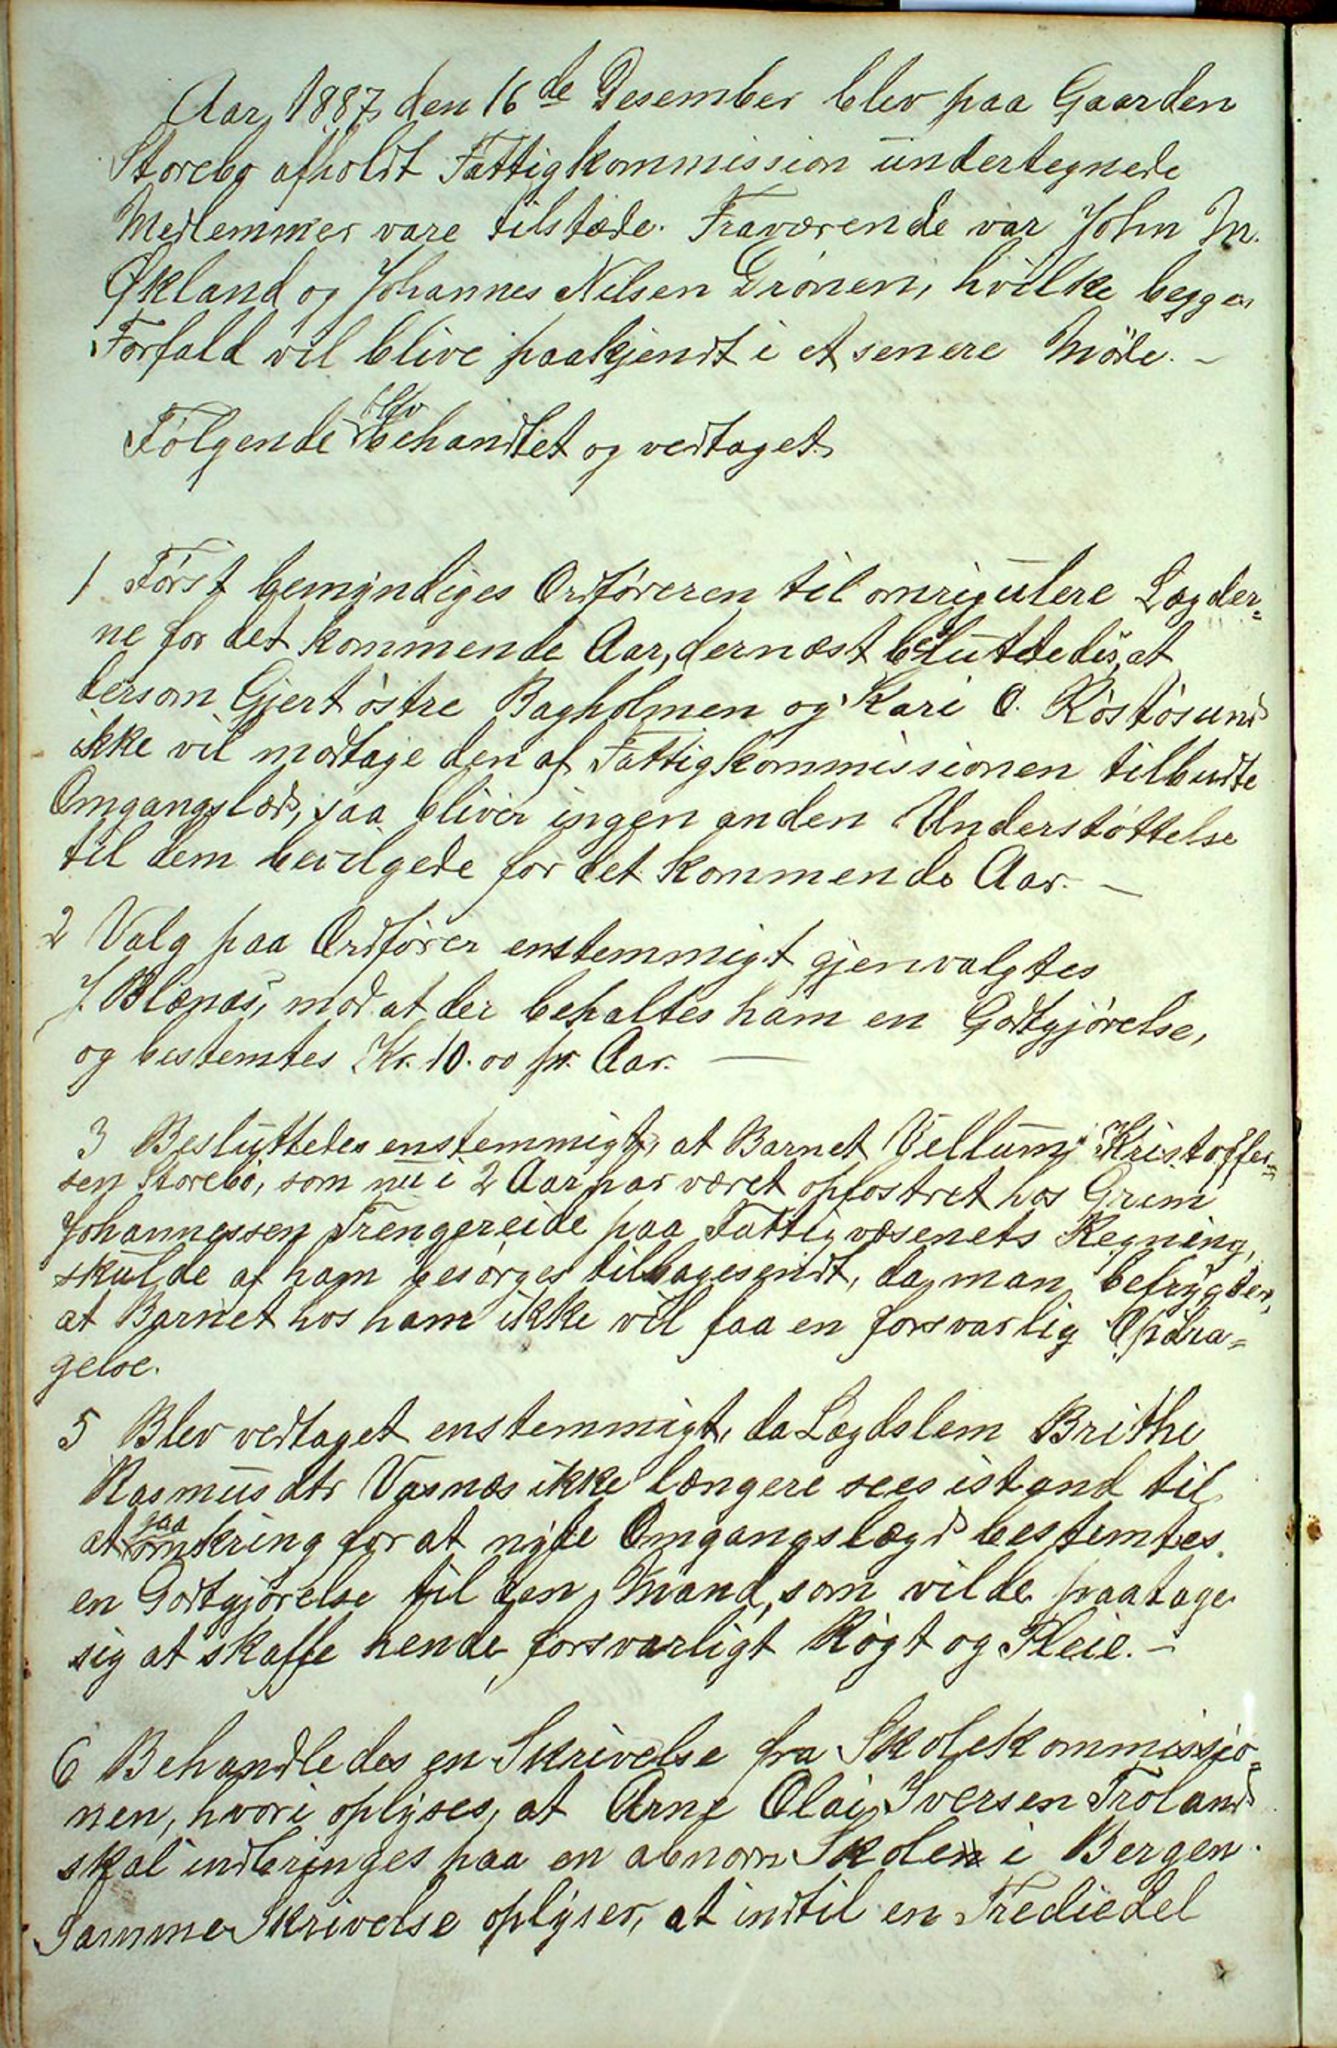 Aar 1887 den 16de Desember blev paa Gaarden
Storebø afholdt Fattigkommission undertegnede
Medlemmer vare tilstæde. Fraværende var John M.
Økland og Johannes Nilsen Drønen, hvilke begges
Forfald vil blive paakjendt i et senere Møde. –
Følgende blev behandlet og vedtaget
1 Først bemyndiges Ordføreren til omrigulere Lægder=
ne for det kommende Aar, dernæst besluttedes, at
dersom Gjert østre Bagholmen og Kari O. Røstøsund
ikke vil modtage den af Fattigkommissionen tilbudte
Omgangslæd, saa bliver ingen anden Understøttelse
til dem bevilgede for det kommende Aar. –
2 Valg paa Ordfører enstemmigt gjenvalgtes
J. Blænæs, mod at der behaltes ham en Godtgjørelse,
og bestemtes Kr. 10.00 pr. Aar. –
3 Besluttedes enstemmigt, at Barnet Villum Kristoffer=
sen Storebø, som nu i 2 Aar har været opfostret hos Grim
Johannessen Trengereide paa Fattigvæsenets Regning,
skulde af ham besørges tilbagesendt, da man befrygder,
at Barnet hos ham ikke vil faa en forsvarlig Opdra=
gelse.
5 Blev vedtaget enstemmigt, da Lægdslem Brithe
Rasmusdtr Vasnæs ikke længere sees istand til
at gaa omkring for at nyde Omgangslægd bestemtes
en Godtgjørelse til den Mand, som vilde paatage
sig at skaffe hende forsvarligt Røgt og Pleie. –
6 Behandledes en Skrivelse fra Skolekommissio=
nen, hvori oplyses, at Arne Olai Iversen Troland
skal indbringes paa en abnorm Skole i Bergen.
Samme Skrivelse oplyser, at indtil en Trediedel